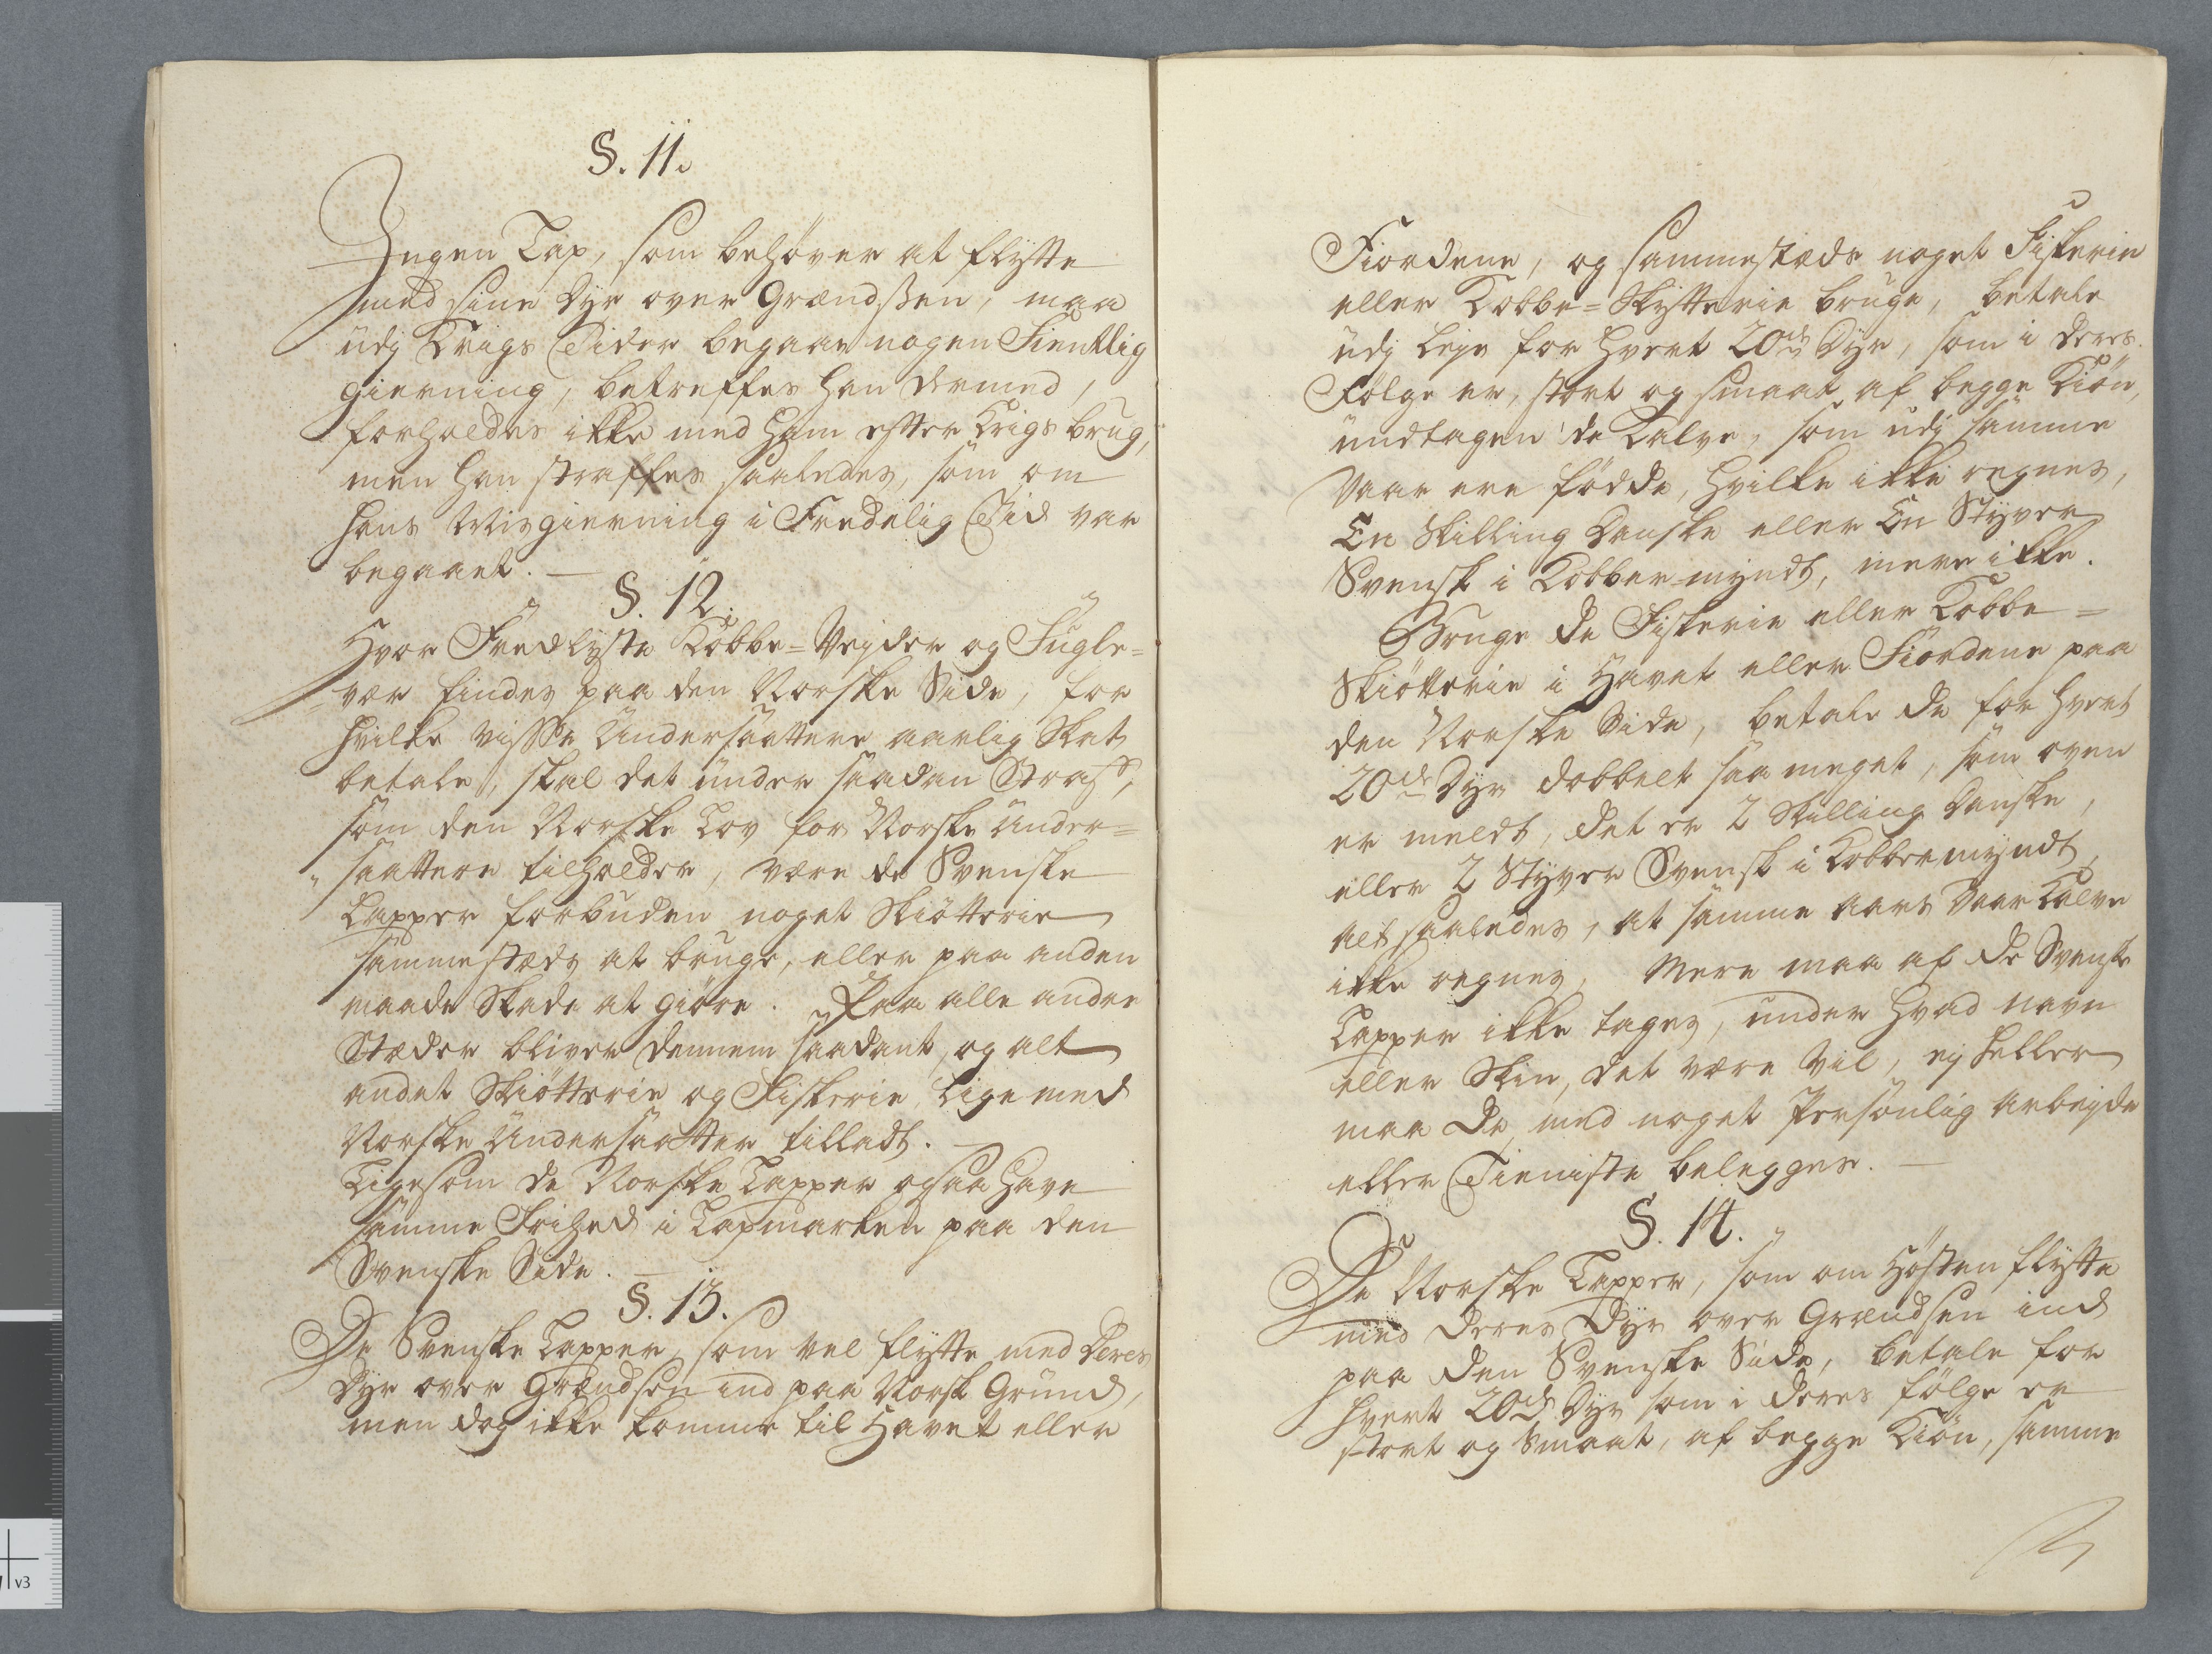 §. 11.
Ingen Lap, som behøver at flytte
med sine Dyr over Grændsen, maa
udj Krigs Tider begaae nogen Fientlig
gierning, betreffes han dermed,
forholdes ikke med ham efter Krigs brug,
men han straffes saaledes, som om
hans Misgierning i Fredelig Tid var
begaaet. —
§. 12.
Hvor Fredlyste Kobbe=Vejder og Fugle=
vær findes paa den Norske Side, for
hvilke visse Undersaattere aarlig Skat
betale, skal det under saadan Straf,
som den Norske Lov for Norske Under=
saattere tilholder, være de Svenske
Lapper forbuden noget Skiøtterie
sammestæds at bruge, eller paa anden
maade Skade at giøre. Paa alle andre
Stæder bliver dennem saadant, og alt
andet Skiøtterie og Fiskerie lige med
Norske Undersaatter tilladt. —
Ligesom de Norske Lapper ogsaa have
samme Frihed i Lapmarken paa den
Svenske Side. —
§. 13.
De Svenske Lapper, som vel flytte med deres
Dyr over Grændsen ind paa Norsk Grund,
men dog ikke komme til Havet eller
Fiordene, og sammestæds noget Fiskerie
eller Kobbe=Skytterie bruge, betale
udj Leje for hvert 20de Dyr, som i deres
Følge er, stort og smaat af begge Kiøn,
undtagen de Kalve, som udj samme
Vaar ere fødde, hvilke ikke regnes,
En Skilling Danske eller En Styver
Svensk i Kobber-myndt, mere ikke.
Bruge de Fiskerie eller Kobbe=
Skiøtterie i Havet eller Fiordene paa
den Norske Side, betale de for hvert
20de Dyr dobbelt saa meget, som oven
er meldt, det er 2 Skilling Danske,
eller 2 Styver Svensk i Kobbermyndt,
alt saaledes, at samme aars Vaar Kalve
ikke regnes, Mere maa af de Svenske
Lapper ikke tages, under hvad navn
eller Skin, det være vil, ej heller
maa de med noget Personlig Arbejde
eller Tieniste belegges. —
§. 14.
De Norske Lapper, som om Høsten flytte
med deres Dyr over Grændsen ind
paa den Svenske Side, betale for
hvert 20de Dyr som i deres følge er
stort og Smaat, af begge Kiøn, samme